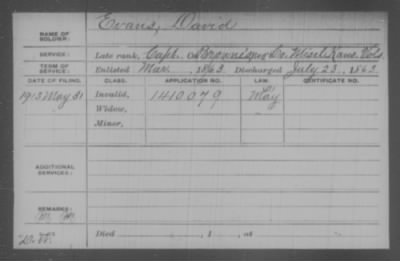 NAME OF SOLDIER: Evans, David
SERVICE: Late rank, Capt. Co. Miscl. Kans. Vols.
TERM OF SERVICE: Enlisted Mar. , 1863. Discharged July 23 , 1863.
DATE OF FILING. CLASS. APPLICATION NO. LAW. CERTIFICATE NO.
1913 May 31 Invalid, 1410079 May
Widow,
Minor,
ADDITIONAL SERVICES:
REMARKS:
Died , 1 , at